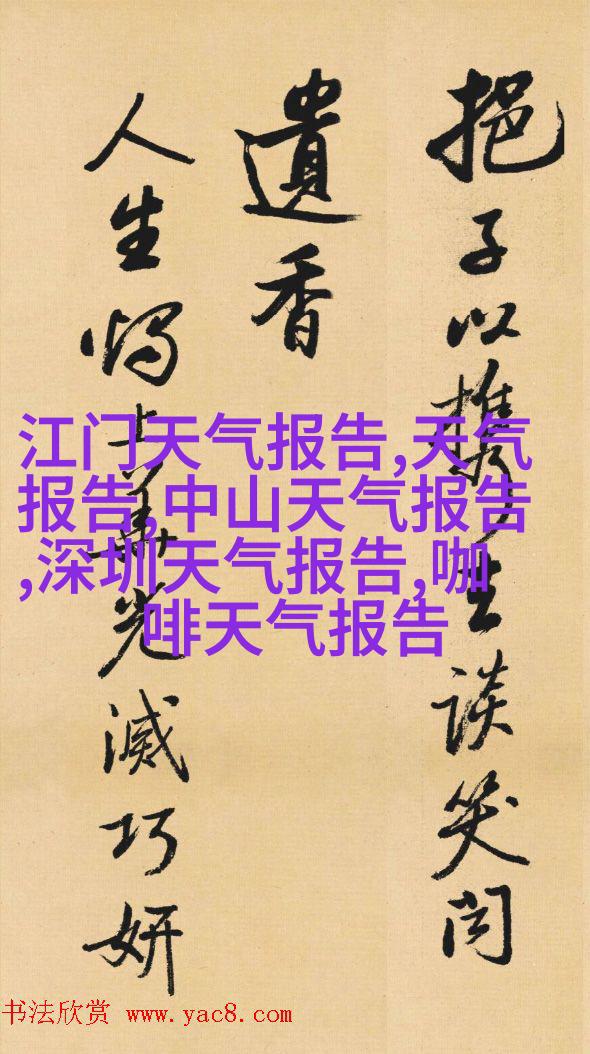 挹子以攜坐談笑間
遺香
人生燭上華光滅巧妍
江门天气报告,天气
报告,中山天气报告
,深圳天气报告,咖
啡天气报告
书法欣赏 www.yac8.com